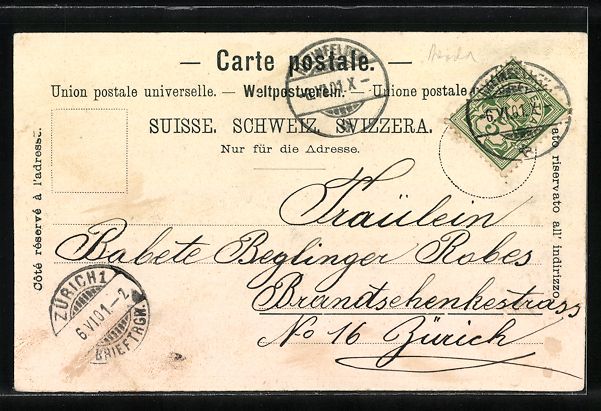 — Carte postale. —
Union postale universelle. — Weltpostverein. — Unione postale
SUISSE. SCHWEIZ. SVIZZERA.
Nur für die Adresse.
Côté réservé à l'adresse.
riservato all' indirizzo.
6.VI.01.X-
6.VI.01
Fräulein
Babete Beglinger Robes
Brandschenkestrass
No 16 Zürich
ZÜRICH 1
6.VI.01.-2
BRIEFTRGW.